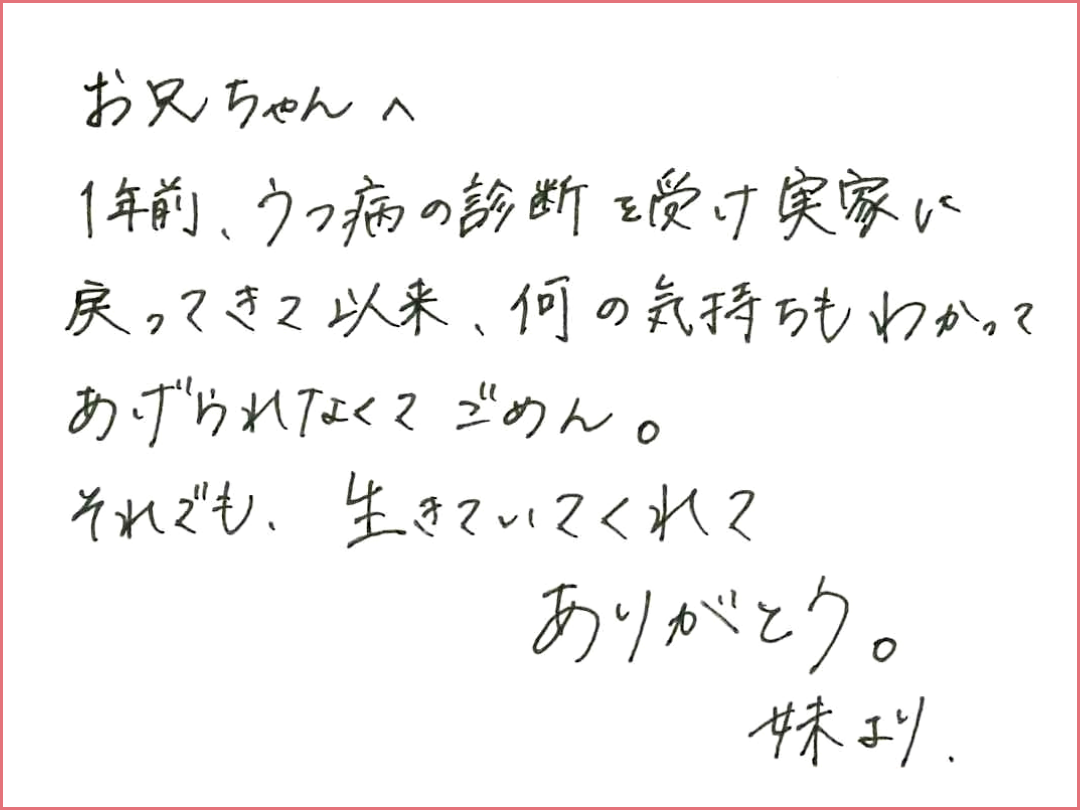 お兄ちゃんへ
1年前、うつ病の診断を受け実家に
戻ってきて以来、何の気持ちもわかって
あげられなくてごめん。
それでも、生きていてくれて
ありがとう。
妹より.